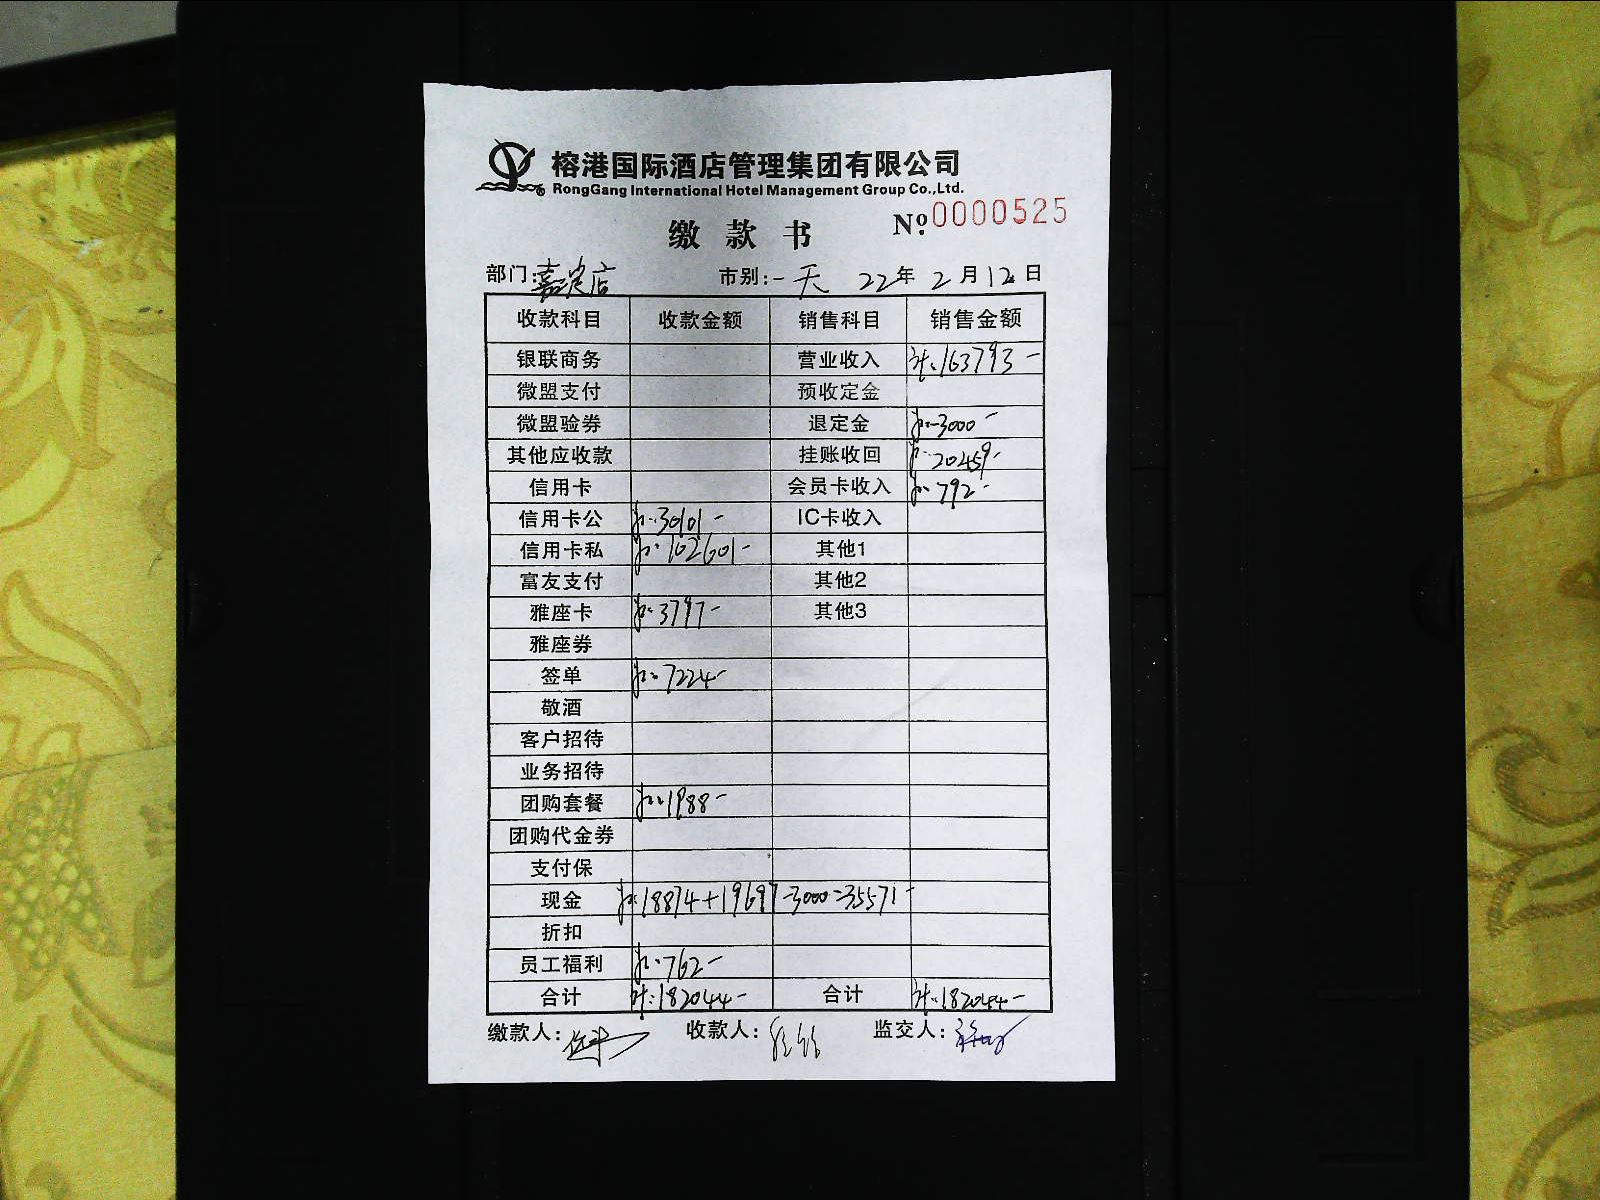 榕港国际酒店管理集团有限公司
RongGang International Hotel Management Group Co.,Ltd.
缴款书 Nº:0000525
部门: 店 市别:一天 22年2月12日
收款科目 收款金额 销售科目 销售金额
银联商务 营业收入 计:163793-
微盟支付 预收定金
微盟验券 退定金 -3000-
其他应收款 挂账收回 20459-
信用卡 会员卡收入 792-
信用卡公 30101- IC卡收入
信用卡私 102601- 其他1
富友支付 其他2
雅座卡 3797- 其他3
雅座券
签单 7224-
敬酒
客户招待
业务招待
团购套餐 1988-
团购代金券
支付保
现金 18874+19697-3000=35571-
折扣
员工福利 762-
合计 计:182044- 合计 计:182044-
缴款人: 收款人: 监交人: